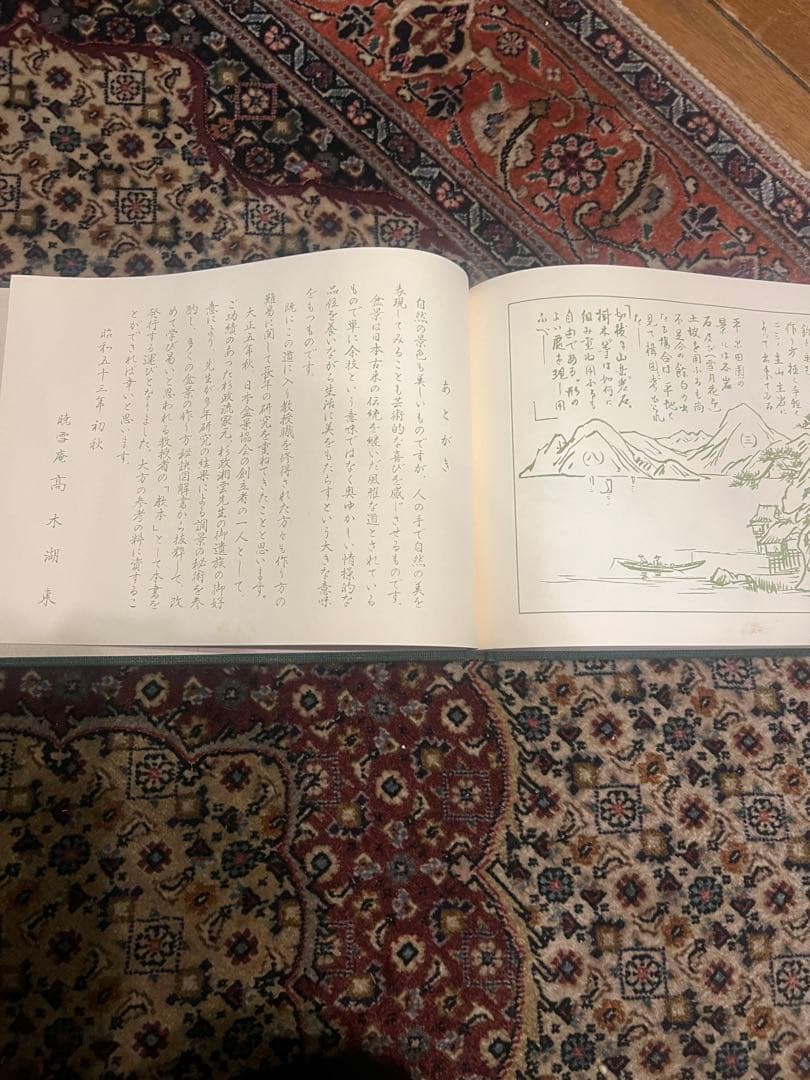 土坡を用ふるも尚
たる場合は 平地と
樹木等は如何に
組み重ね用ふるも
自由である 形の
よい處を現し用
ふべし
(二)
(八)
あとがき
自然の景色も美しいものですが、人の手で自然の美を
表現してみることも芸術的な喜びを感じさせるものです。
盆景は日本古来の伝統を継いだ風雅な道とされている
もので単に余技という意味ではなく奥ゆかしい情操的な
品位を養いながら生活に美をもたらすという大きな意味
をもつものです。
既にこの道に入り教授職を修得された方々も作り方の
難易に関して長年の研究を重ねてきたことと思います。
大正五年秋、日本盆景協会の創立者の一人として、
ご功績のあった杉政流家元、杉政湘雲先生の御遺族の御好
意により、先生の多年研究の結果による調景の秘術を参
酌し、多くの盆景の作り方秘訣図解書から抜粋して、改
めて学び易いと思われる教授者の「教本」として本書を
発行する運びとなりました。大方の参考の料に資するこ
とができれば幸いと思います。
昭和五十三年 初秋
暁雪庵 高木湖東